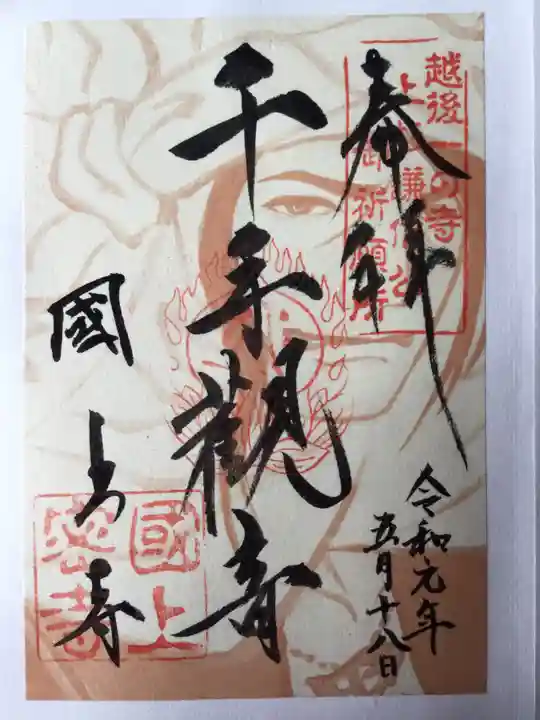 奉拝
越後一の寺
上杉謙信公
御祈願所
千手觀音
令和元年
五月十八日
國上寺
國上
寺